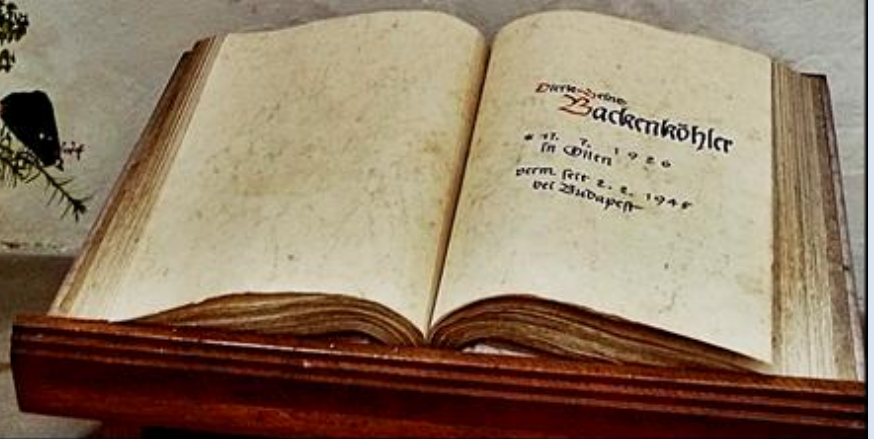 Dierk-Heino
Backenköhler
* 17. 7. 1926
in Wien
verm. seit 2. 2. 1945
bei Budapest